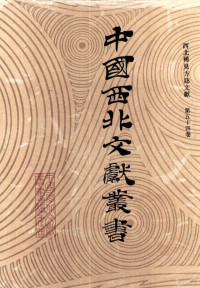 西北稀見方志文獻 第五十四卷
中國西北文獻叢書